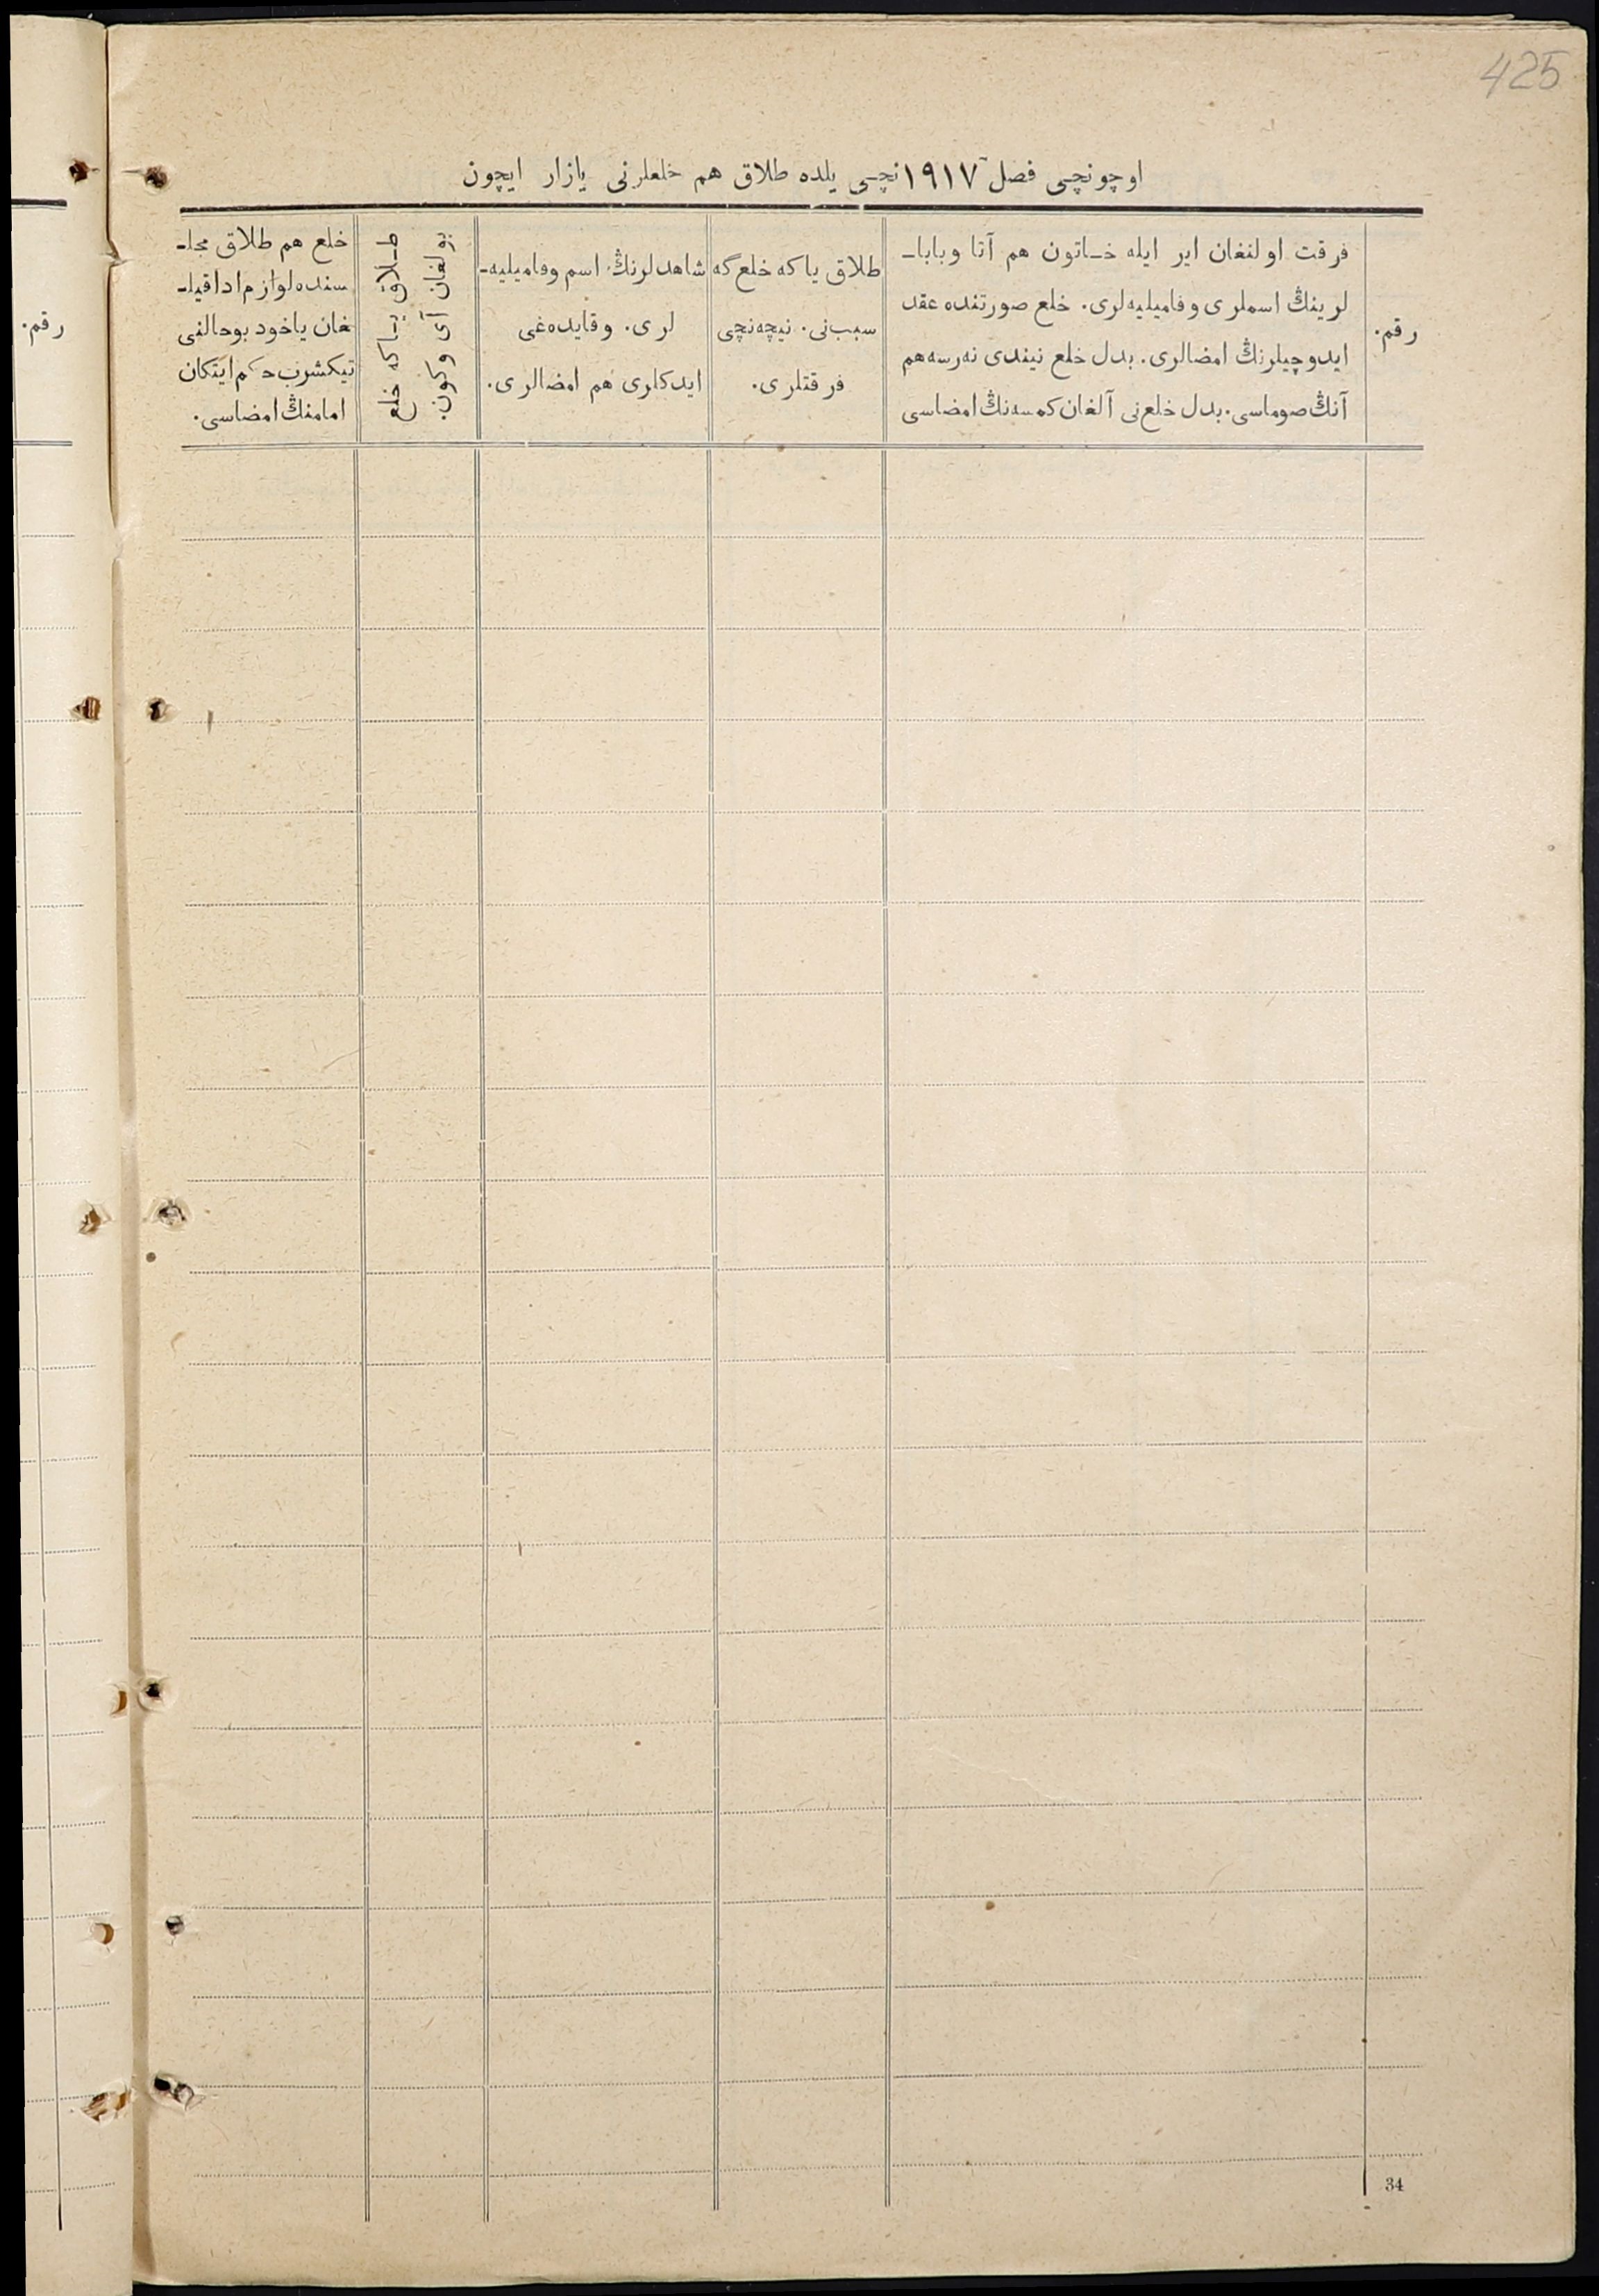 425
اوچونچی فصل ۱۹۱۷ نچی یلده طلاق هم خلعلرنی یازار ایچون
رقم.
فرقت اولنغان ایر ایله خاتون هم آتا وبابا-
لرینڭ اسملری وفامیلیه‌لری. خلع صورتنده عقد
ایدوچیلرنڭ امضالری. بدل خلع نیندی نه‌رسه هم
آنڭ صوماسی. بدل خلع نی آلغان کمسه‌نڭ امضاسی
طلاق یاکه خلع گه
سببنی. نیچه‌نچی
فرقتلری.
شاهدلرنڭ اسم وفامیلیه-
لری. وقایده‌غی
ایدکلری هم امضالری.
طلاق یاکه خلع
بولغان آی وکون.
خلع هم طلاق مجلـ
سنده لوازم ادا قیلـ
غان یاخود بوحالنی
تیکشرب حکم ایتکان
امامنڭ امضاسی.
رقم.
34